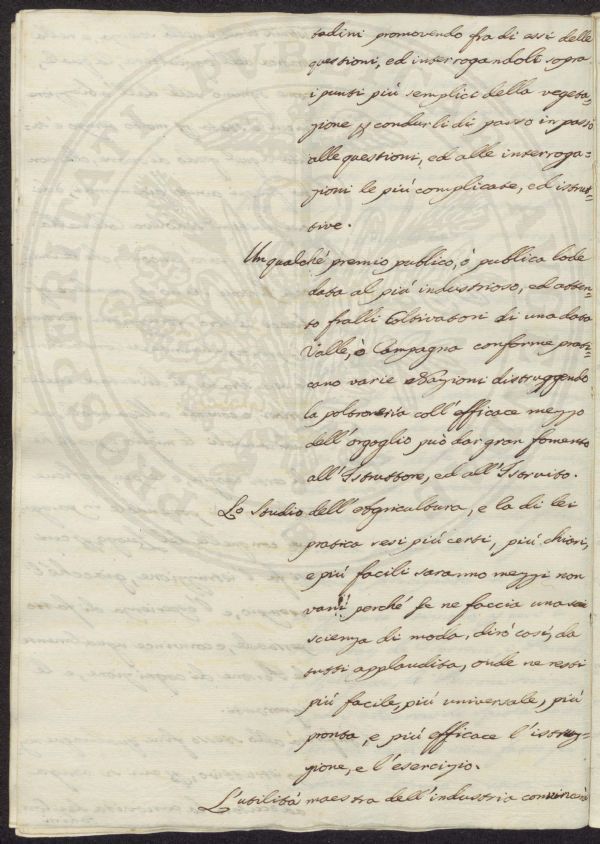 tadini promovendo fra di essi delle
questioni, ed interrogandoli sopra
i punti più semplici della vegeta-
zione, e condurli di passo in passo
alle questioni, ed alle interroga-
zioni le più complicate, ed istrut-
tive.
Un qualché premio publico, ò publica lode
data al più industrioso, ed atten-
to fralli Coltivatori di una data
Valle, ò Campagna conforme prati-
cano varie Nazioni distruggendo
la poltroneria coll'efficace mezzo
dell'orgoglio può dar gran fomento
all'Istruttore, ed all'Istruito.
Lo studio dell'Agricultura, e la di lei
pratica resi più certi, più chiari,
e più facili saranno mezzi non
vani perché se ne faccia una
scienza di moda, dirò così, da
tutti applaudita, onde ne resti
più facile, più universale, più
pronta, e più efficace l'istruz-
zione, e l'esercizio.
L'utilità maestra dell'industria